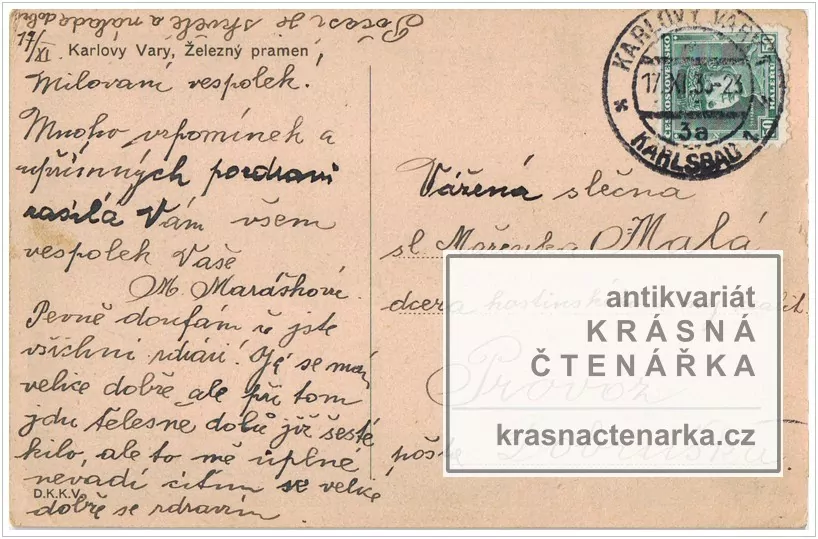 Počasí je skvělé a nálada dobrá
17/IX.
Karlovy Vary, Železný pramen
Milovaní vespolek.
Mnoho vzpomínek a
upřímných pozdravů
zasílá Vám všem
vespolek Vaše
M. Maráškové.
Pevně doufám že jste
všichni zdrávi! Já se mám
velice dobře ale při tom
jdu tělesně dolů již šesté
kilo, ale to mě úplně
nevadí cítím se velice
dobře se zdravím
D.K.K.V.
KARLOVY VARY 1
17. XI. 35-23
3a
KARLSBAD 1
ČESKOSLOVENSKO
Vážená slečna
sl Mařenka Malá
dcera hostinského
Provoz
pošta Dobruška
antikvariát
KRÁSNÁ
ČTENÁŘKA
krasnactenarka.cz